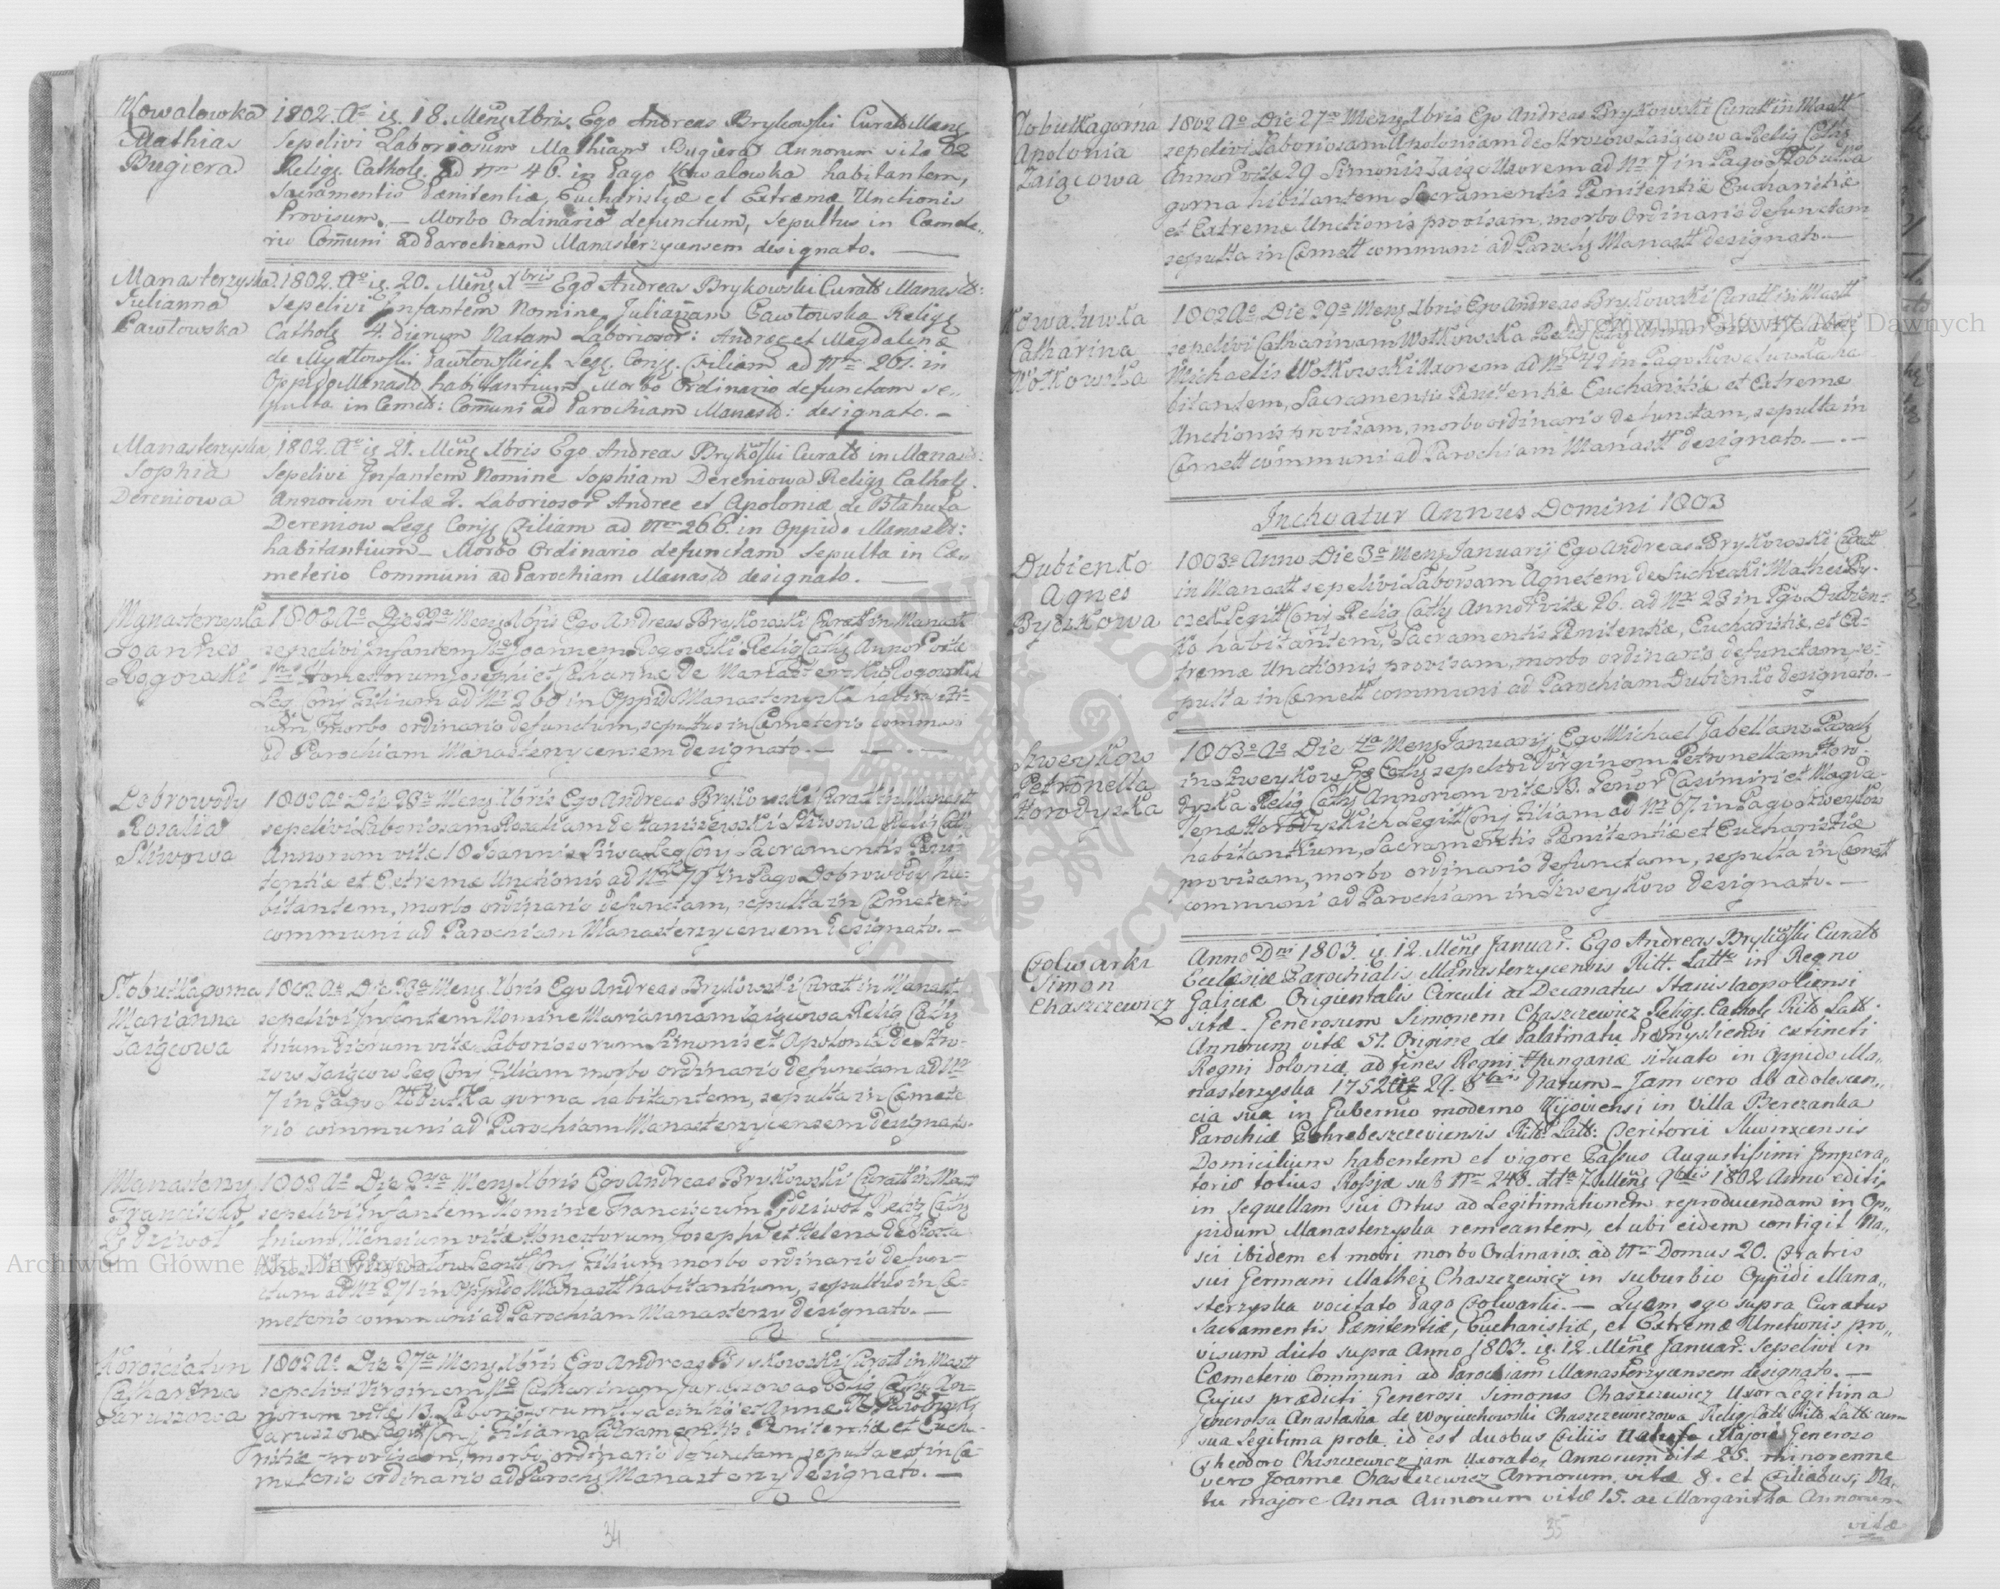 Kowalowka
Mathias
Bugiera
1802. Ao is. 18. Mens Xbris. Ego Andreas Brykowski Curats Manas
sepelivi Laboriosum Mathiam Bugiera Annorum vitæ 62
Religs Catholc. ad Nro 46. in Pago Kowalowka habitantem,
Sacramentis Pænitentiæ, Eucharistiæ et Extremæ Unctionis
Provisum. — Morbo Ordinario defunctum, sepultus in Cæmete„
rio Com̄uni ad Parochiam Manasterzycensem designato. —
Manasterzyska
Julianna
Pawłowska
1802. Ao is. 20. Mens Xbris Ego Andreas Brykowski Curats Manast:
Sepelivi Infantem Nomine Juliannam Pawłowska Religs
Catholc 4. dierum Natam Laboriosor: Andreæ et Magdalenæ
de Mydłowski Pawłowskich Legs. Conjs. Filiam ad Nro 261. in
Oppido Manast habitantium Morbo Ordinario defunctam se„
pulta in Cemet: Com̄uni ad Parochiam Manast: designato. —
Manasterzyska
Sophia
Dereniowa
1802. Ao is 21. Mens Xbris Ego Andreas Brykowski Curats in Manast:
Sepelivi Infantem Nomine Sophiam Dereniowa Religs Catholc.
Annorum vitæ 2. Laboriosor Andree et Apoloniæ de Błahuta
Dereniow Legs Conjs Filiam ad Nro 266. in Oppido Manast:
habitantium — Morbo Ordinario defunctam sepulta in Cæ„
meterio Communi ad Parochiam Manast designato. —
Manasterzyska
Joannes
Rogowski
1802 Ao Die 22a Mens Xbris Ego Andreas Brykowski Curatt in Manast
sepelivi Infantem Joannem Rogowski Relig Cath Annor vitæ
Honestorum Josephi et Cathari de Rogowskich
Leg Conj Filium ad Nr 260 in Oppido Manasterzyska habitanti-
um, morbo ordinario defunctum, sepultus in Cæmeterio communi
ad Parochiam Manasterzycensem designato. —
Dobrowody
Rosalia
Sliwowa
1802 Ao Die 23a Mens Xbris Ego Andreas Brykowski Curatt in Manast
sepelivi Laboriosam Rosaliam de Sliwowa Relig Cath
Annorum vitæ 18 Joannis Sliwa Leg Conj Sacramentis Peni-
tentiæ et Extremæ Unctionis ad Nro 79 in Pago Dobrowody ha-
bitantem, morbo ordinario defunctam, sepulta in Cæmeterio
communi ad Parochiam Manasterzycensem designato. —
Słobutkagorna
Marianna
Zaigcowa
1802 Ao Die 23a Mens Xbris Ego Andreas Brykowski Curatt in Manast
sepelivi Infantem Nomine Mariannam Zaigcowa Relig Cath
trium Dierum vitæ Laboriosorum Simonis et Apolonia de Stro-
zow Zaigcow Leg Conj Filiam morbo ordinario defunctam ad Nro
7 in Pago Słobutka gorna habitantem, sepulta in Cæmete
rio communi ad Parochiam Manasterzycensem designato.
Manasterzy
Franciscus
1802 Ao Die Mens Xbris Ego Andreas Brykowski Curatt in Mast
sepelivi Infantem Nomine Franciscum Relig Cath
trium Mensium vitæ Honestorum Josephi et Helena de
Legitt Conj Filium morbo ordinario defun-
ctum ad Nr 271 in Oppido Manast habitantium, sepultus in Cæ-
meterio communi ad Parochiam Manasterzy designato. —
Korościatyn
Catharina
Jaruszowa
1802 Ao Die 27a Mens Xbris Ego Andreas Brykowski Curatt in Mastt
sepelivi Virginem Catharinam Jaruszowa Relig Cath An-
norum vitæ 13 Laboriosorum et Anna
Jaruszow Legitt Conj Filiam Sacramentis Penitentiæ et Eucha-
ristiæ provisam, morbo ordinario defunctam, sepulta est in Cæ-
meterio ordinario ad Parochs Manasterzy designato. —
34
Słobutkagorna
Apolonia
Zaigcowa
1802 Ao Die 27a Mens Xbris Ego Andreas Brykowski Curatt in Mastt
sepelivi Laboriosam Apoloniam de Strozow Zaigcowa Relig Cath
Annor vitæ 29 Simonis Zaigc Uxorem ad Nr 7 in Pago Słobutka
gorna habitantem Sacramentis Penitentiæ Eucharistiæ
et Extremæ Unctionis provisam, morbo Ordinario defunctam
sepulta in Cæmett communi ad Parochs Manastt designato. —
Kowalowka
Catharina
Wołkowska
1802 Ao Die 29a Mens Xbris Ego Andreas Brykowski Curatt in Mastt
sepelivi Catharinam Wołkowska Relig Cath
Michaelis Wołkowski Uxorem ad Nr 42 in Pago Kowalowka ha-
bitantem, Sacramentis Penitentiæ Eucharistiæ et Extremæ
Unctionis provisam, morbo ordinario defunctam, sepulta in
Cæmett communi ad Parochiam Manastt designato. —
Inchoatur Annus Domini 1803
Dubienko
Agnes
Byczkowa
1803o Anno Die 3a Mens Januarij Ego Andreas Brykowski Curatt
in Manastt sepelivi Laborsam Agnetem de Suchecki Mathei By-
czek Legitt Conj Relig Cath Annor vitæ 26. ad Nr 23 in Pgo Dubien-
ko habitantem, Sacramentis Penitentiæ, Eucharistiæ, et Ex-
tremæ Unctionis provisam, morbo ordinario defunctam, se-
pulta in Cæmett communi ad Parochiam Dubienko designato. —
Szweykow
Petronella
Horodyska
1803o Ao Die 4a Mens Januarij Ego Michael Jabellano Paroch
in Szweykow sepelivi Virginem Petronellam Horo-
dyska Relig Cath Annorum vitæ Genor Casimiri et Magda-
lenæ Horodyskich Legitt Conj Filiam ad Nr 67 in Pago Szweykow
habitantium, Sacramentis Penitentiæ et Eucharistiæ
provisam, morbo ordinario defunctam, sepulta in Cæmett
communi ad Parochiam in Szweykow designato. —
Folwarki
Simon
Chaszczewicz
Anno Dni 1803. is 12. Mens Januar. Ego Andreas Brykowski Curats
Ecclesiæ Parochialis Manasterzycensis Ritt. Latto in Regno
Galiciæ Orientalis Circuli ac Decanatus Stanislaopoliensi
sitæ. Generosum Simonem Chaszczewicz Religs. Catholc Ritt Latt.
Annorum vitæ 51. Origine de Palatinatu Præmysliensi extincti
Regni Poloniæ, ad fines Regni Hunganæ situato in Oppido Ma„
nasterzyska 1752 29. 8bris Natum — Jam vero ab adolescen„
cia sua in Gubernio moderno Kijoviensi in Villa Berezanka
Parochiæ Ritt Latt:
Domicilium habentem et vigore Passus Augustissimi Impera„
toris totius Rossiæ sub Nro 248. dtta 7. Mens 9bris 1802 Anno editi
in sequellam sui Ortus ad Legitimationem reproducendam in Op„
pidum Manasterzyska remeantem, et ubi eidem contigit Na„
sci ibidem et mori morbo Ordinario. ad Nro Domus 20. Fratris
sui Germani Mathei Chaszczewicz in suburbio Oppidi Mana„
sterzyska vocitato Pago Folwarki. — Quem ego supra Curatus
Sacramentis Pænitentiæ, Eucharistiæ, et Extremæ Unctionis pro„
visum dicto supra Anno 1803. is. 12. Mens Januar. Sepelivi in
Cæmeterio Communi ad Parochiam Manasterzycensem designato. —
Cujus prædicti Generosi Simonis Chaszczewicz Uxor Legitima
Generosa Anastasia de Woyciechowski Chaszczewiczowa Relig Catt Ritt Latt cum
sua Legitima prole, id est duobus Filiis Majore Generoso
Theodoro Chaszczewicz jam Uxorato, Annorum vitæ 25. minorenne
vero Joanne Chaszczewicz Annorum vitæ 8. et Filiabus, Na„
tu majore Anna Annorum vitæ 15. ac Margaritha Annorum
vitæ
35
Archiwum Główne Akt Dawnych
Archiwum Główne Akt Dawnych
ARCHIWUM GŁÓWNE AKT DAWNYCH